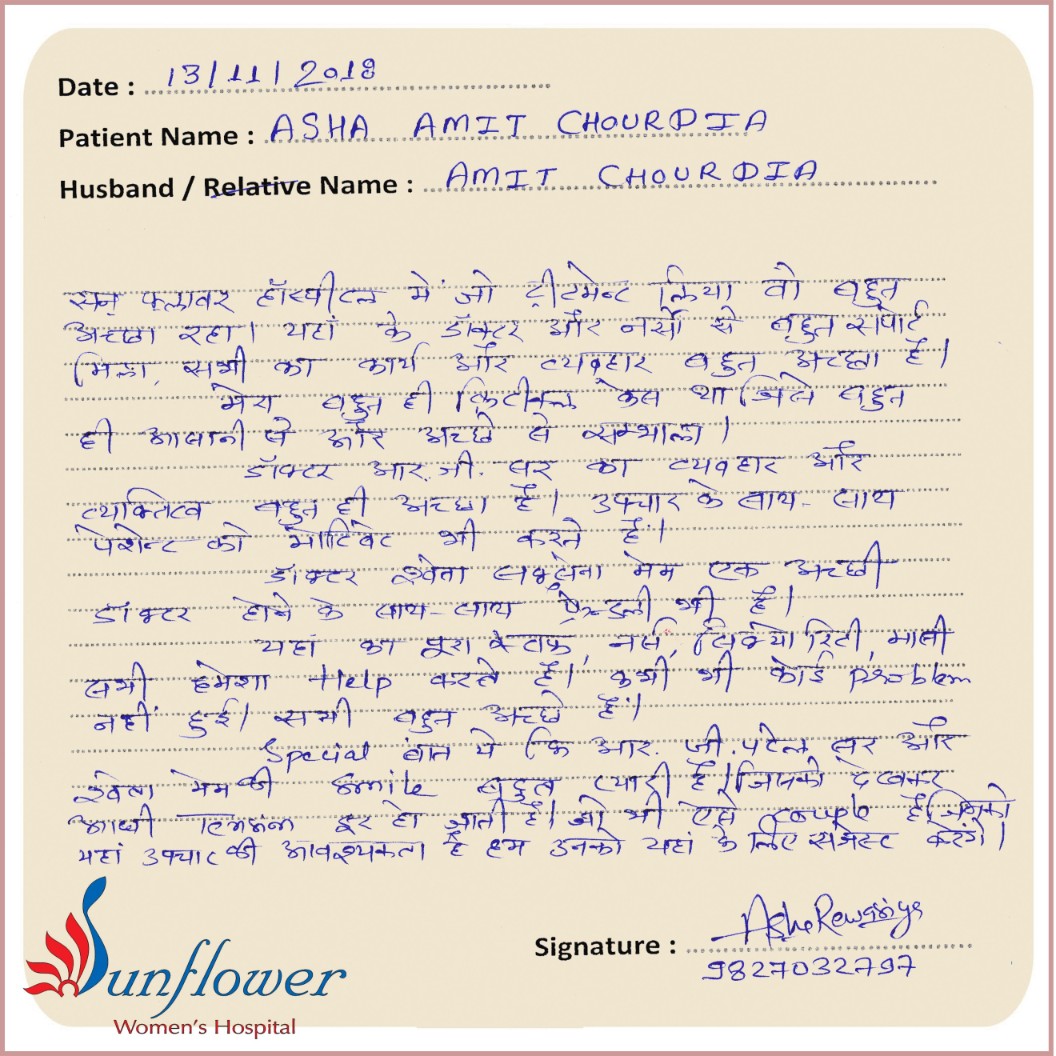 Date : 13/11/2018
Patient Name : ASHA AMIT CHOURDIA
Husband / Relative Name : AMIT CHOURDIA
सन फ्लावर हॉस्पीटल में जो ट्रीटमेन्ट लिया वो बहुत
अच्छा रहा। यहां के डॉक्टर और नर्सों से बहुत सपोर्ट
मिला, सभी का कार्य और व्यवहार बहुत अच्छा है।
मेरा बहुत ही क्रिटीकल केस था जिसे बहुत
ही आसानी से और अच्छे से सम्भाला।
डॉक्टर आर.जी. सर का व्यवहार और
व्यक्तित्व बहुत ही अच्छा है। उपचार के साथ-साथ
पेशेन्ट को मोटिवेट भी करते हैं।
डॉक्टर श्वेता सक्सेना मेम एक अच्छी
डॉक्टर होने के साथ-साथ फ्रेन्डली भी है।
यहां का पूरा स्टाफ, नर्स, सिक्योरिटी, मासी
सभी हमेशा Help करते हैं। कभी भी कोई problem
नहीं हुई। सभी बहुत अच्छे हैं।
Special बात ये कि आर. जी. पटेल सर और
श्वेता मेम की smile बहुत प्यारी है। जिसको देखकर
आधी दूर हो जाती है। जो भी ऐसे couple है जिसको
यहां उपचार की आवश्यकता है हम उनको यहां के लिए सजेस्ट करेंगे।
Signature : Asha Rewariya
9827032797
Sunflower
Women's Hospital